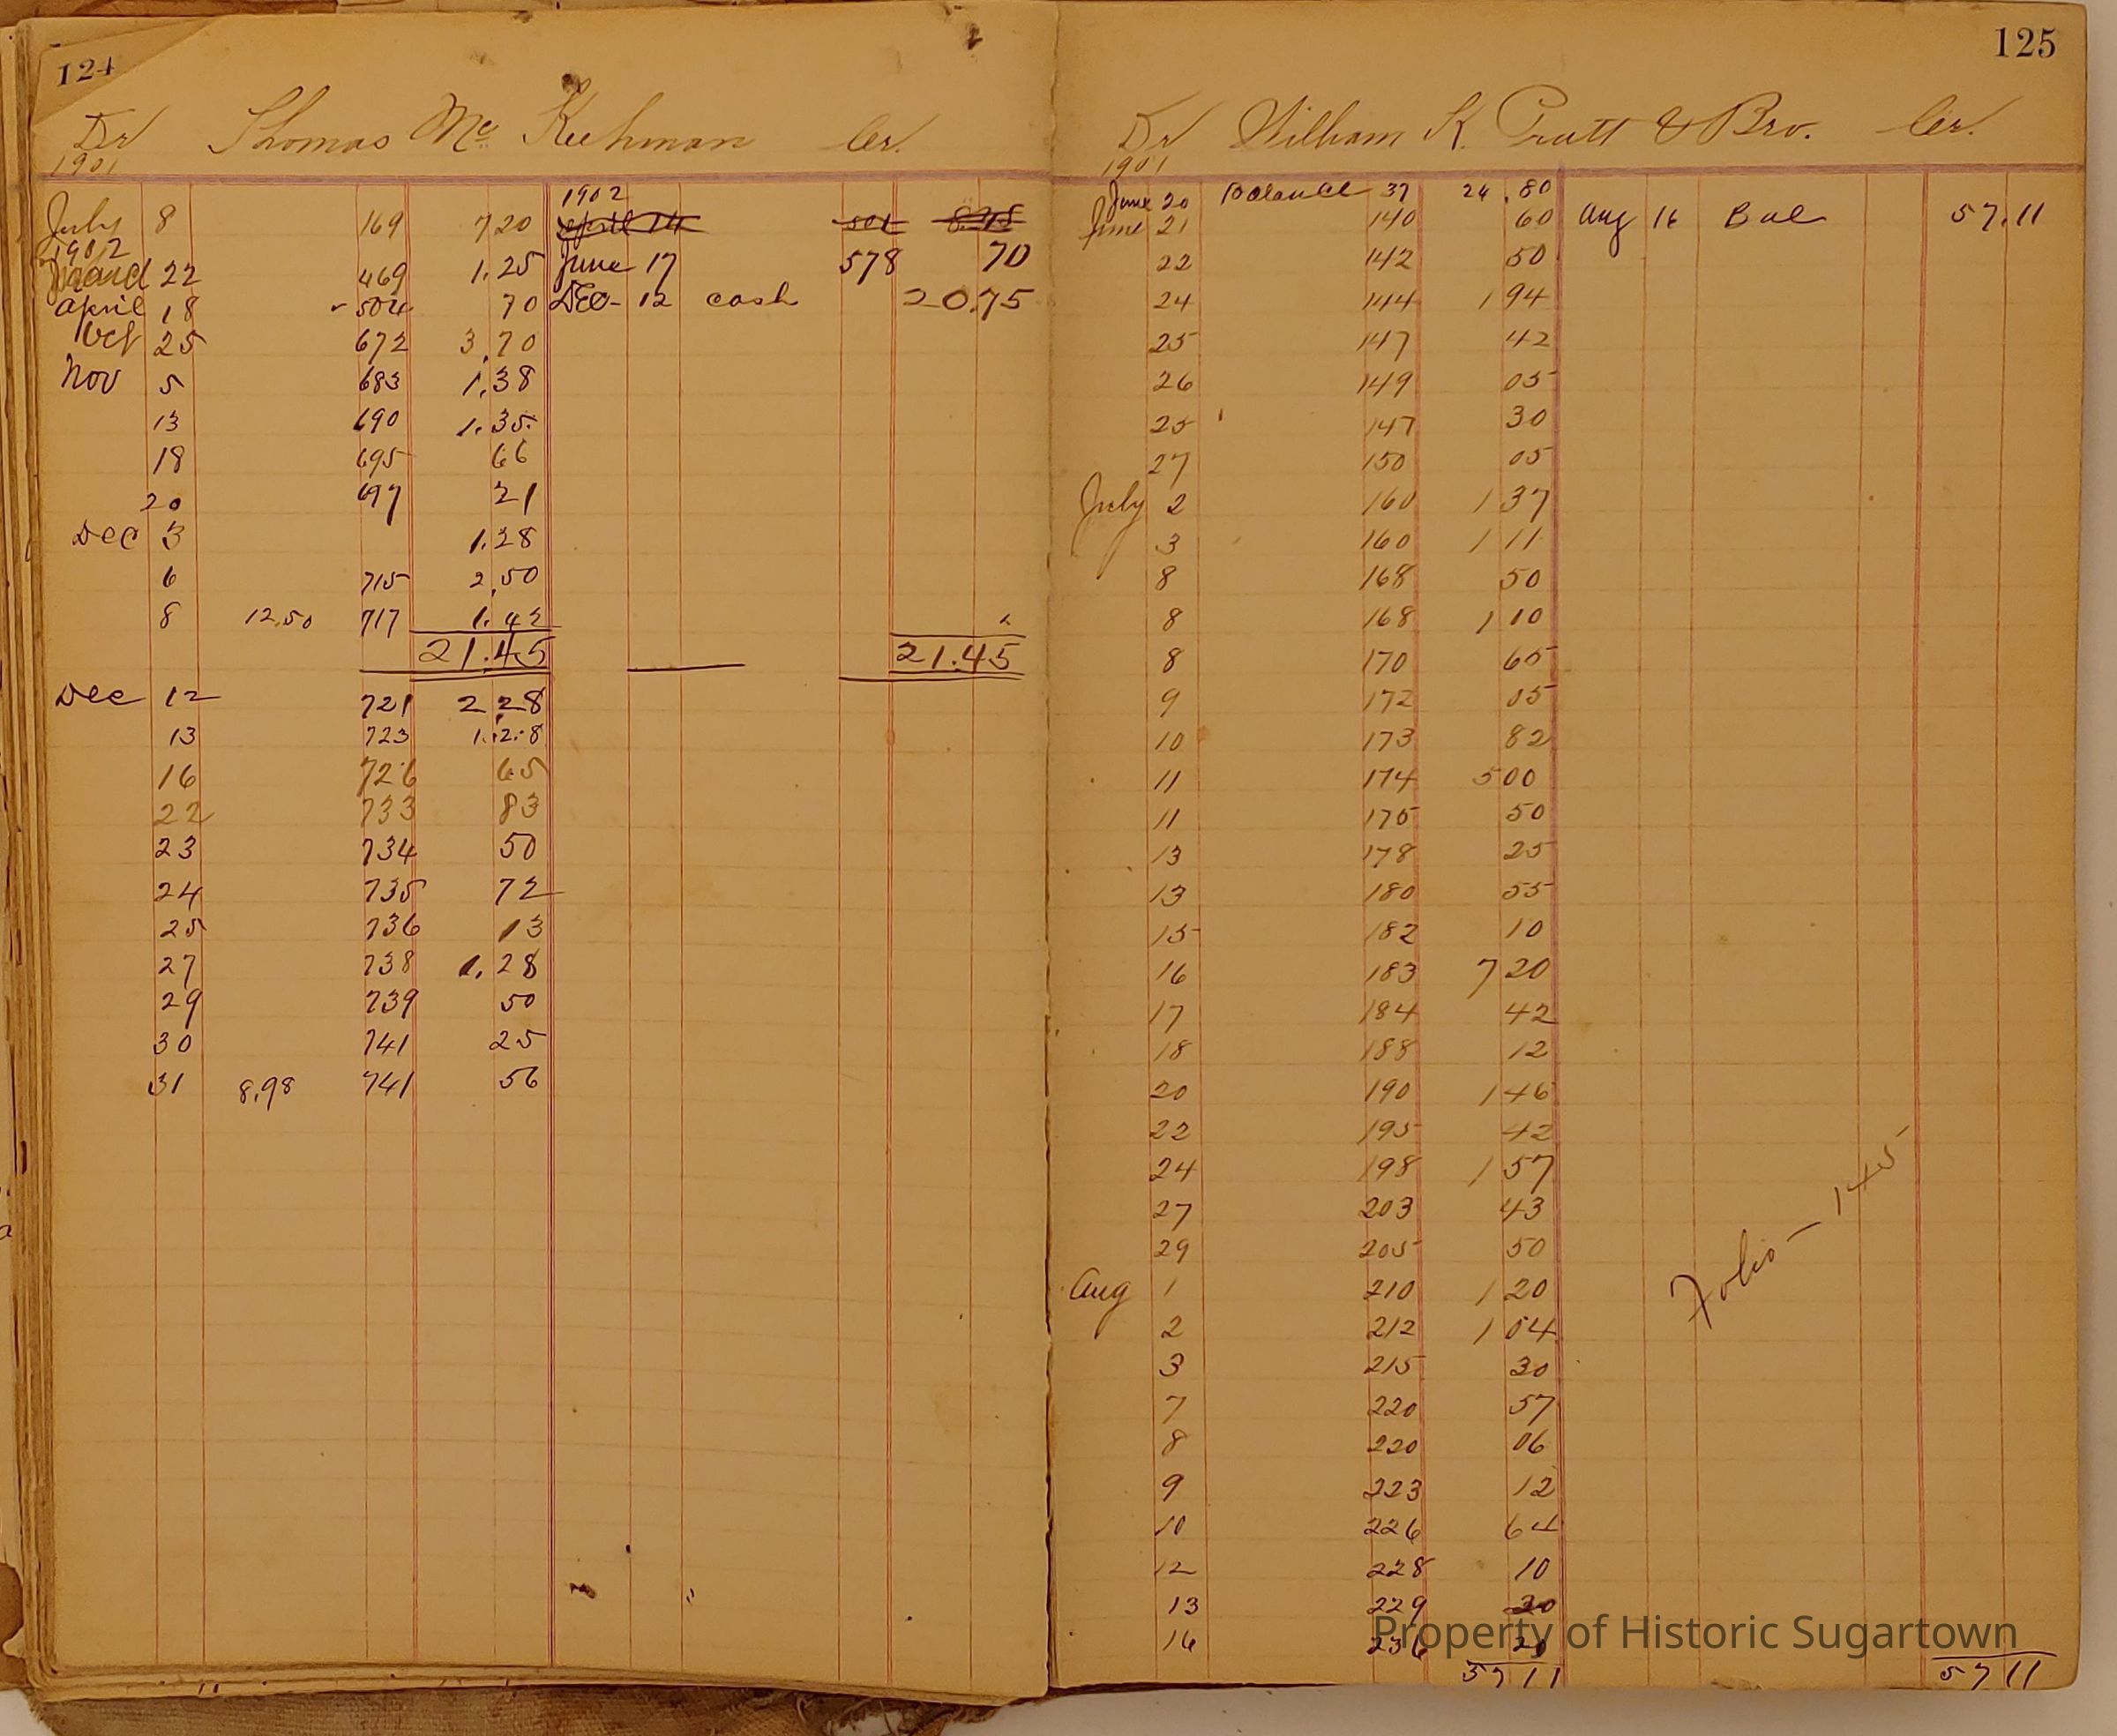 124
Dr Thomas Mc Keehman Cr.
1901
July 8 169 7 20
1902
March 22 469 1.25
April 18 504 70
Oct 25 672 3.70
Nov 5 683 1.38
13 690 1.35
18 695 66
20 697 21
Dec 3 1.28
6 715 2.50
8 12.50 717 1.42
21.45
Dec 12 721 2 28
13 723 1.28
16 726 65
22 733 83
23 734 50
24 735 72
25 736 13
27 738 1.28
29 739 50
30 741 25
31 8.98 741 56
1902
April 14 501
June 17 578 70
Dec- 12 cash 20.75
21.45
125
Dr William K. Pratt & Bro. Cr.
1901
June 20 Balance 37 24.80
June 21 140 60
22 142 50
24 144 1 94
25 147 42
26 149 05
25 147 30
27 150 05
July 2 160 1 37
3 160 1 11
8 168 50
8 168 1 10
8 170 65
9 172 05
10 173 82
11 174 5 00
11 175 50
13 178 25
13 180 55
15 182 10
16 183 7 20
17 184 42
18 188 12
20 190 1 46
22 195 42
24 198 1 57
27 203 43
29 205 50
Aug 1 210 1 20
2 212 1 04
3 215 30
7 220 57
8 220 06
9 223 12
10 226 64
12 228 10
13 229 20
16 236 20
57 11
Aug 16 Bal 57.11
Folio - 145
57 11
Property of Historic Sugartown